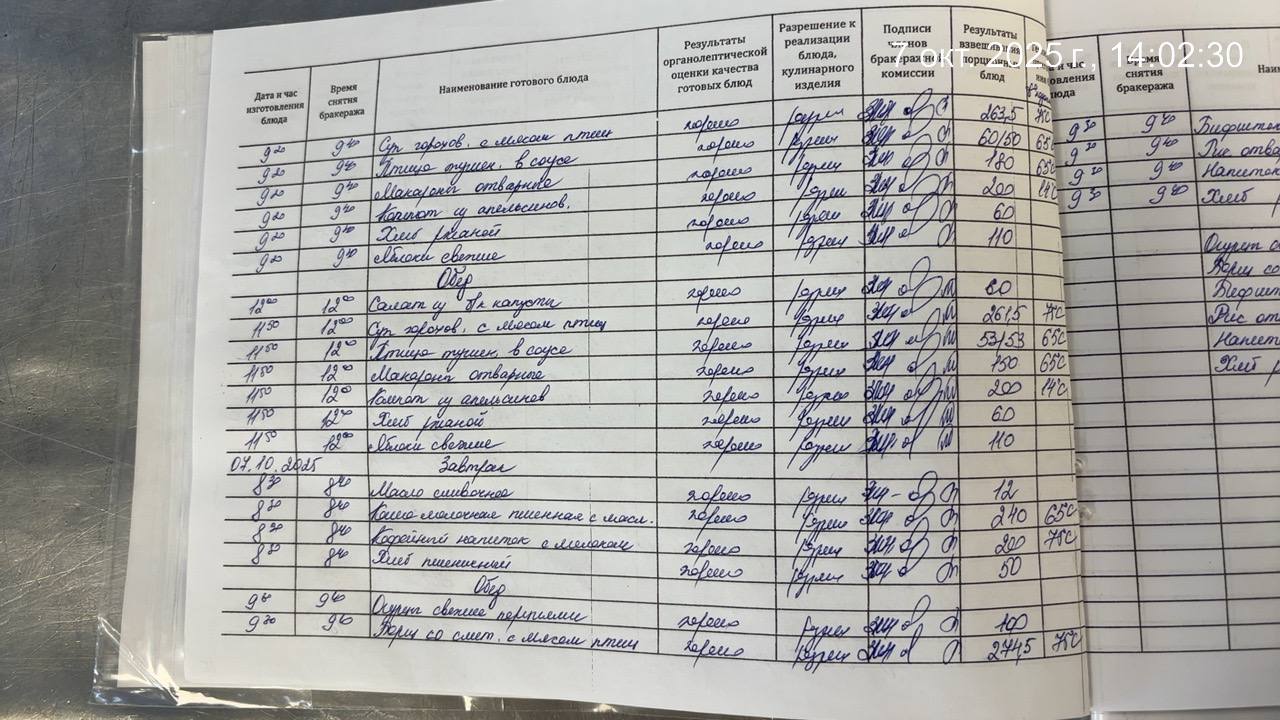 7 окт. 2025 г., 14:02:30
Дата и час изготовления блюда | Время снятия бракеража | Наименование готового блюда | Результаты органолептической оценки качества готовых блюд | Разрешение к реализации блюда, кулинарного изделия | Подписи членов бракеражной комиссии | Результаты взвешивания порционных блюд
9 20 9 40 Суп горохов. с мясом птиц хорошо 263,5 75С
9 20 9 40 Птица тушен. в соусе хорошо 60/50 65С
9 20 9 40 Макароны отварные хорошо 180 65С
9 20 9 40 Компот из апельсинов. хорошо 200 14С
9 20 9 40 Хлеб ржаной хорошо 60
9 20 9 40 Яблоки свежие хорошо 110
Обед
12 00 12 00 Салат из б/к капусты хорошо 60
11 50 12 00 Суп горохов. с мясом птиц хорошо 261,5 75С
11 50 12 00 Птица тушен. в соусе хорошо 53/53 65С
11 50 12 00 Макароны отварные хорошо 150 65С
11 50 12 00 Компот из апельсинов хорошо 200 14°С
11 50 12 00 Хлеб ржаной хорошо 60
11 50 12 00 Яблоки свежие хорошо 110
07.10.2025 Завтрак
8 30 8 40 Масло сливочное хорошо 12
8 30 8 40 Каша молочная пшенная с масл. хорошо 240 65С
8 30 8 40 Кофейный напиток с молоком хорошо 200 75С
8 30 8 40 Хлеб пшеничный хорошо 50
Обед
9 40 Огурцы свежие порциями хорошо 100
9 30 9 40 Борщ со смет. с мясом птиц хорошо 274,5 75С
Время снятия бракеража
9 30 9 40 Бифштек
9 30 9 40 Рис отва
9 30 9 40 Напиток
9 30 9 40 Хлеб
Огурцы с
Борщ со
Бифште
Рис от
Напит
Хлеб р